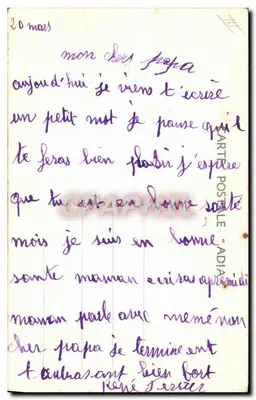 20 mars
mon cher papa
aujourd'hui je viens t'écrire
un petit mot je pause qu'il
te feras bien plaisir j'espère
que tu est en bonne santé
mois je suis en bonne
sante maman ecriras apremidi
maman parle avec mémé mon
cher papa je termine en t
t'anbrasant bien fort
René
CARTE POSTALE - ADIA